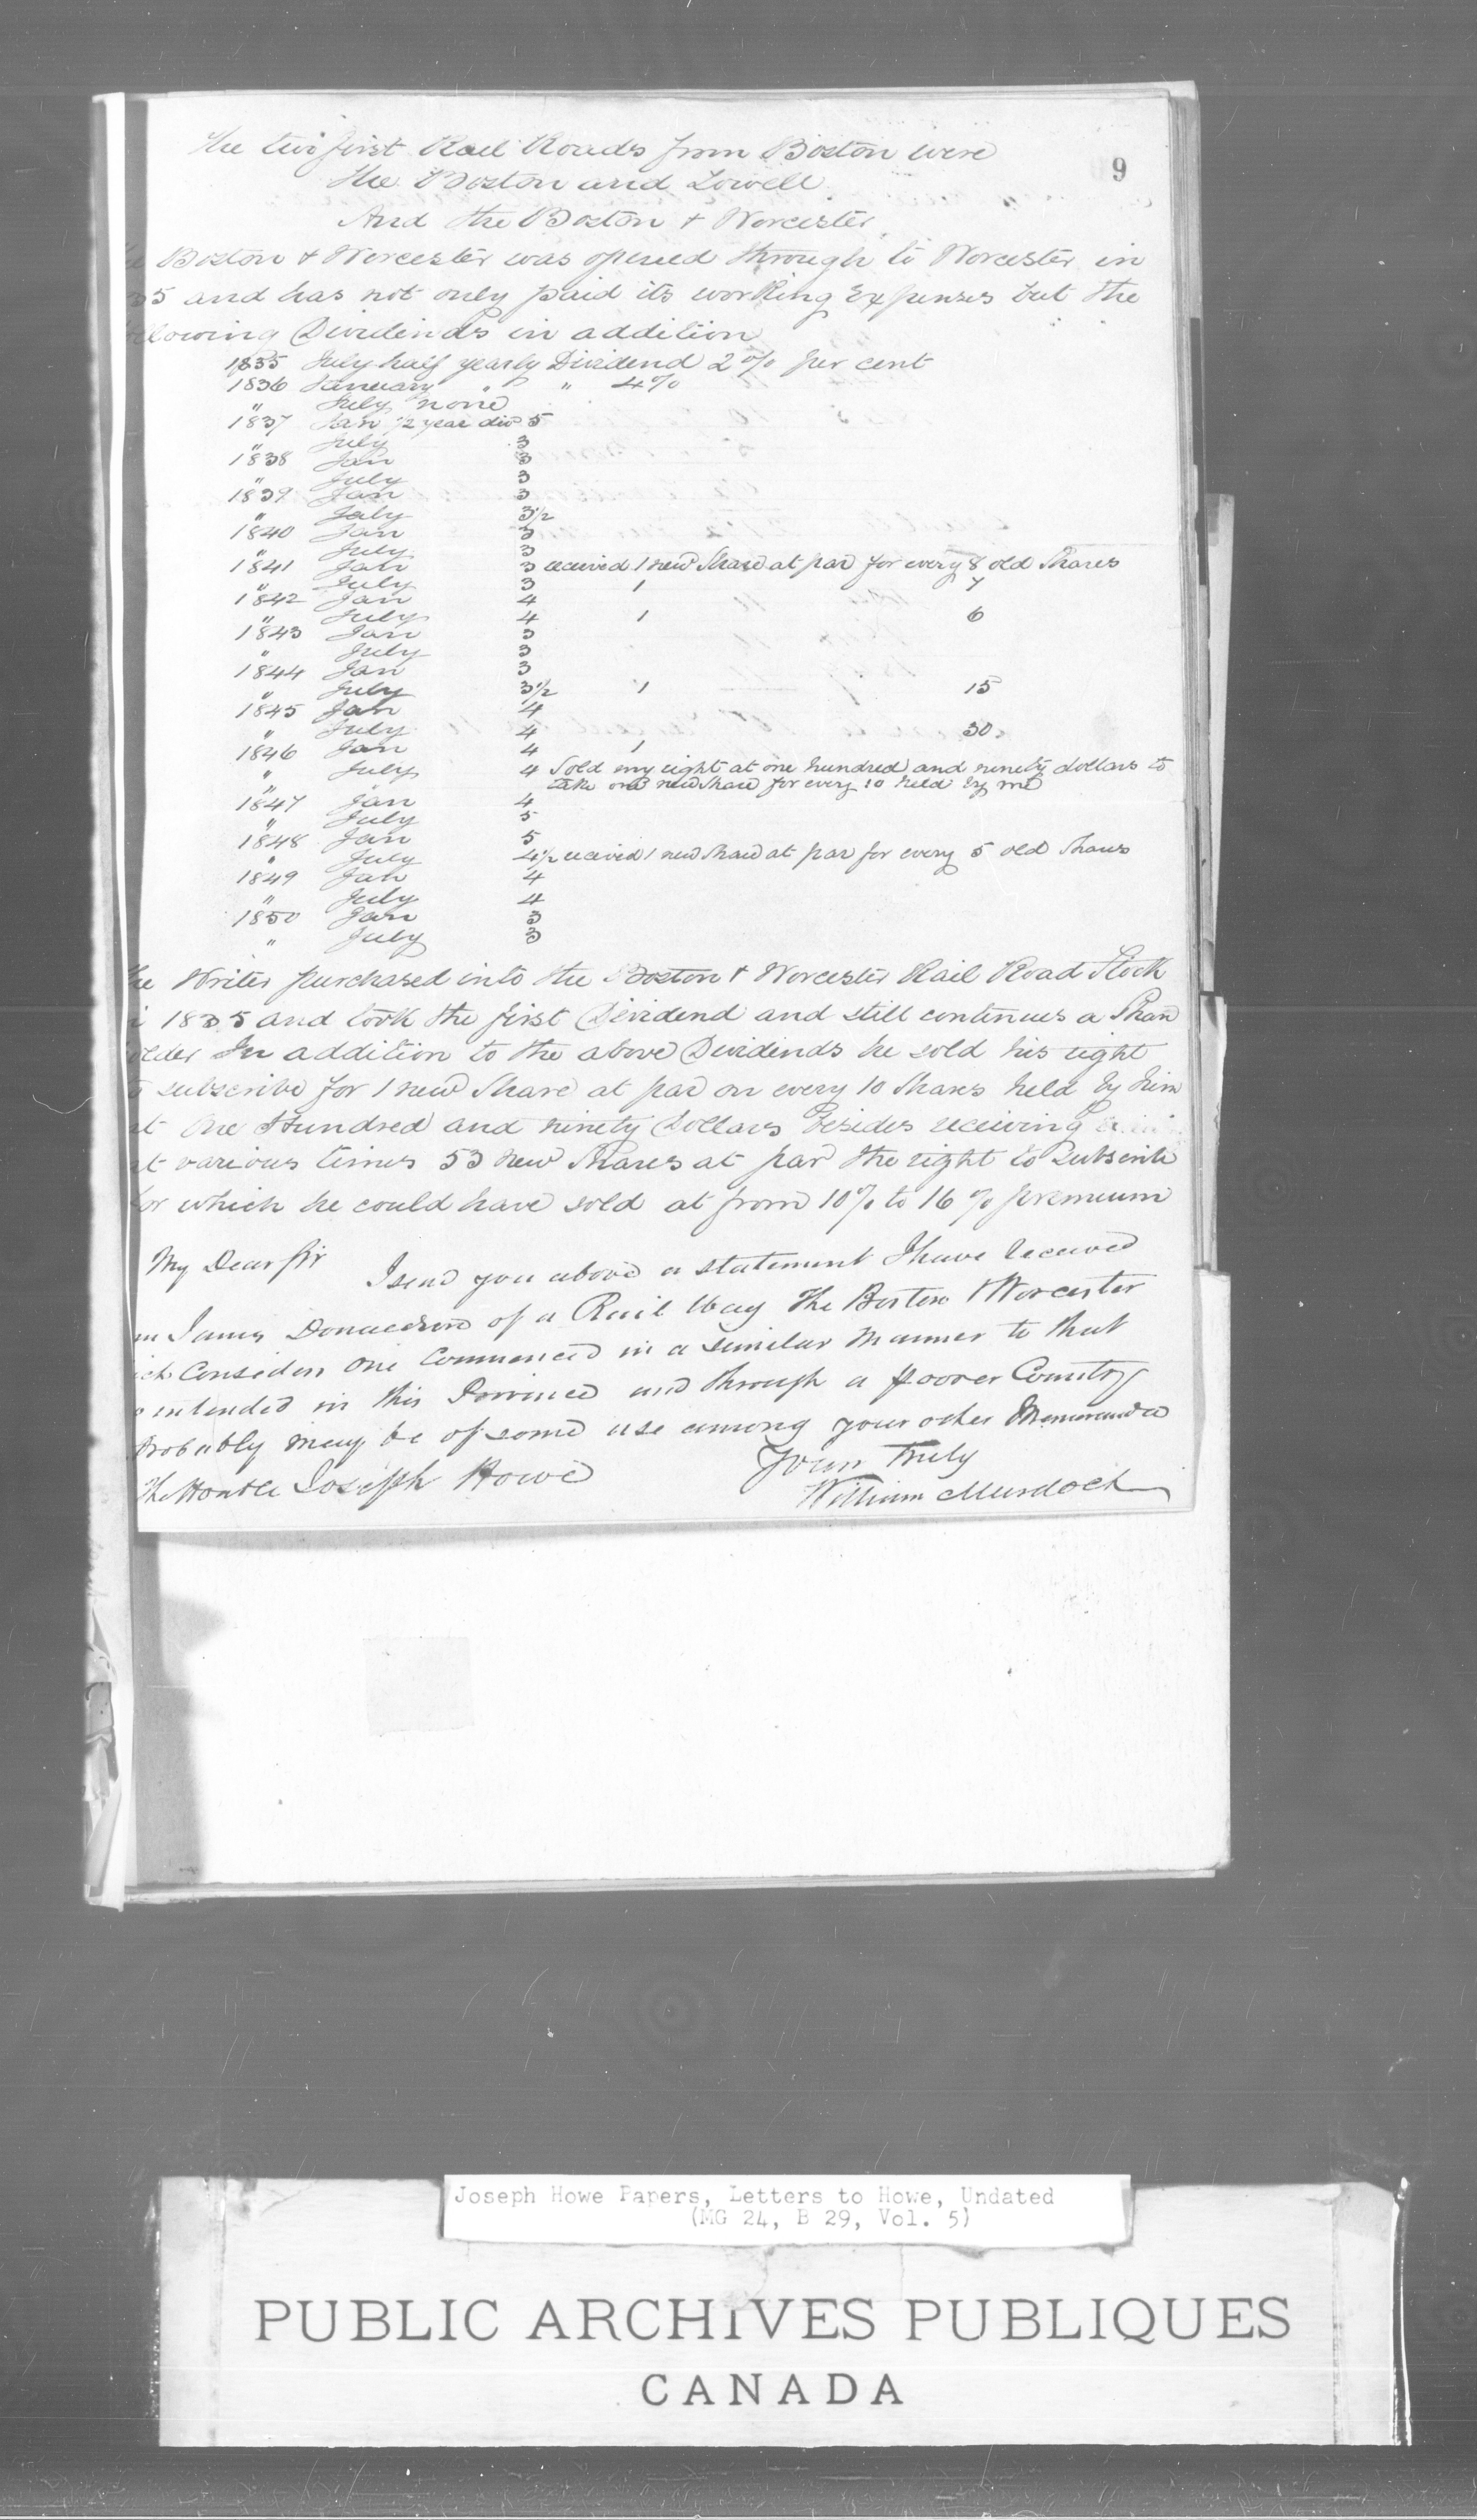 9
The two first Rail Roads from Boston were
the Boston and Lowell
And the Boston & Worcester
Boston & Worcester was opened through to Worcester in
35 and has not only paid its working Expenses but the
llowing Dividends in addition
1835 July half yearly Dividend 2% per cent
1836 January " " 4%
" July none
1837 Jan 1/2 year div 5
" July 3
1838 Jan 3
" July 3
1839 Jan 3
" July 3 1/2
1840 Jan 3
" July 3
1841 Jan 3 received 1 new Share at par for every 8 old Shares
" July 3 1 7
1842 Jan 4
" July 4 1 6
1843 Jan 3
" July 3
1844 Jan 3
" July 3 1/2 1 15
1845 Jan 4
" July 4 30
1846 Jan 4 1
" July 4 Sold my right at one hundred and ninety dollars to
take one new Share for every 10 held by me
1847 Jan 4
" July 5
1848 Jan 5
" July 4 1/2 received 1 new Share at par for every 5 old Shares
1849 Jan 4
" July 4
1850 Jan 3
" July 3
he Writer purchased into the Boston & Worcester Rail Road Stock
1835 and took the first Dividend and still continues a Share
older In addition to the above Dividends he sold his right
subscribe for 1 new Share at par on every 10 Shares held by him
at One Hundred and ninety Dollars besides receiving
at various times 53 new Shares at par the right to Subscribe
for which he could have sold at from 10% to 16% premium
My Dear Sir I send you above a statement I have received
James Donaldson of a Rail Way the Boston & Worcester
Considers one Commenced in a similar manner to that
intended in this Province and through a poorer Country
Probably may be of some use among your other Memoranda
Yours Truly
The Honble Joseph Howe
William Murdoch
Joseph Howe Papers, Letters to Howe, Undated
(MG 24, B 29, Vol. 5)
PUBLIC ARCHIVES PUBLIQUES
CANADA